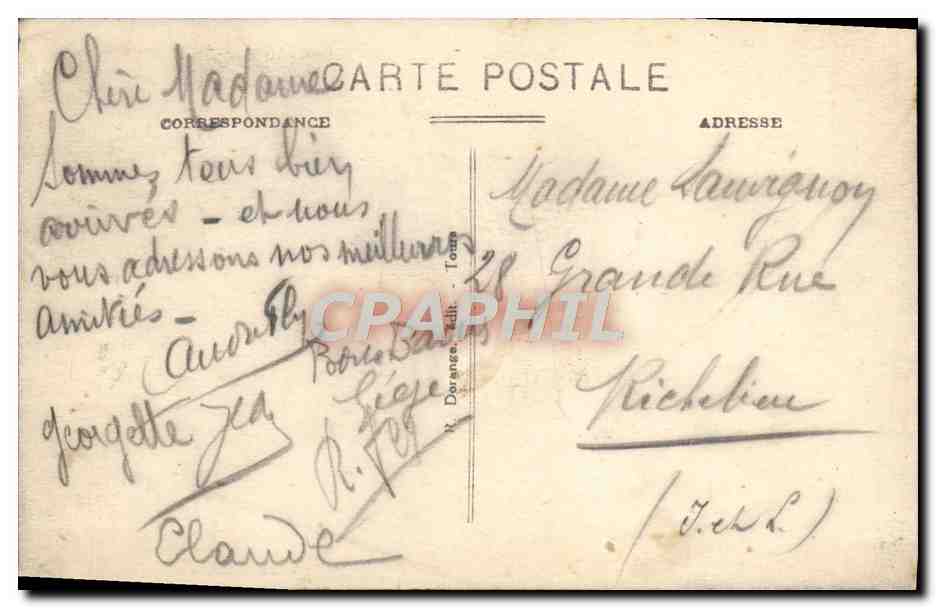 CARTE POSTALE
CORRESPONDANCE
ADRESSE
Chère Madame
Sommes tous bien
arrivés - et nous
vous adressons nos meilleures
amitiés -
Georgette
Claude
R. Dorange, édit. - Tours
Madame Lauvignon
28 Grande Rue
Richelieu
(I. et L.)
CPAPHIL